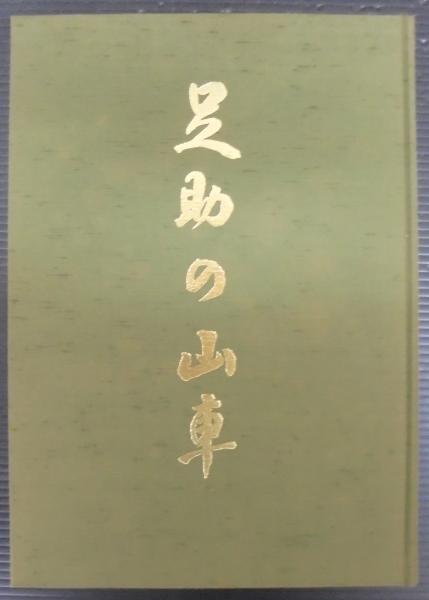 足助の山車